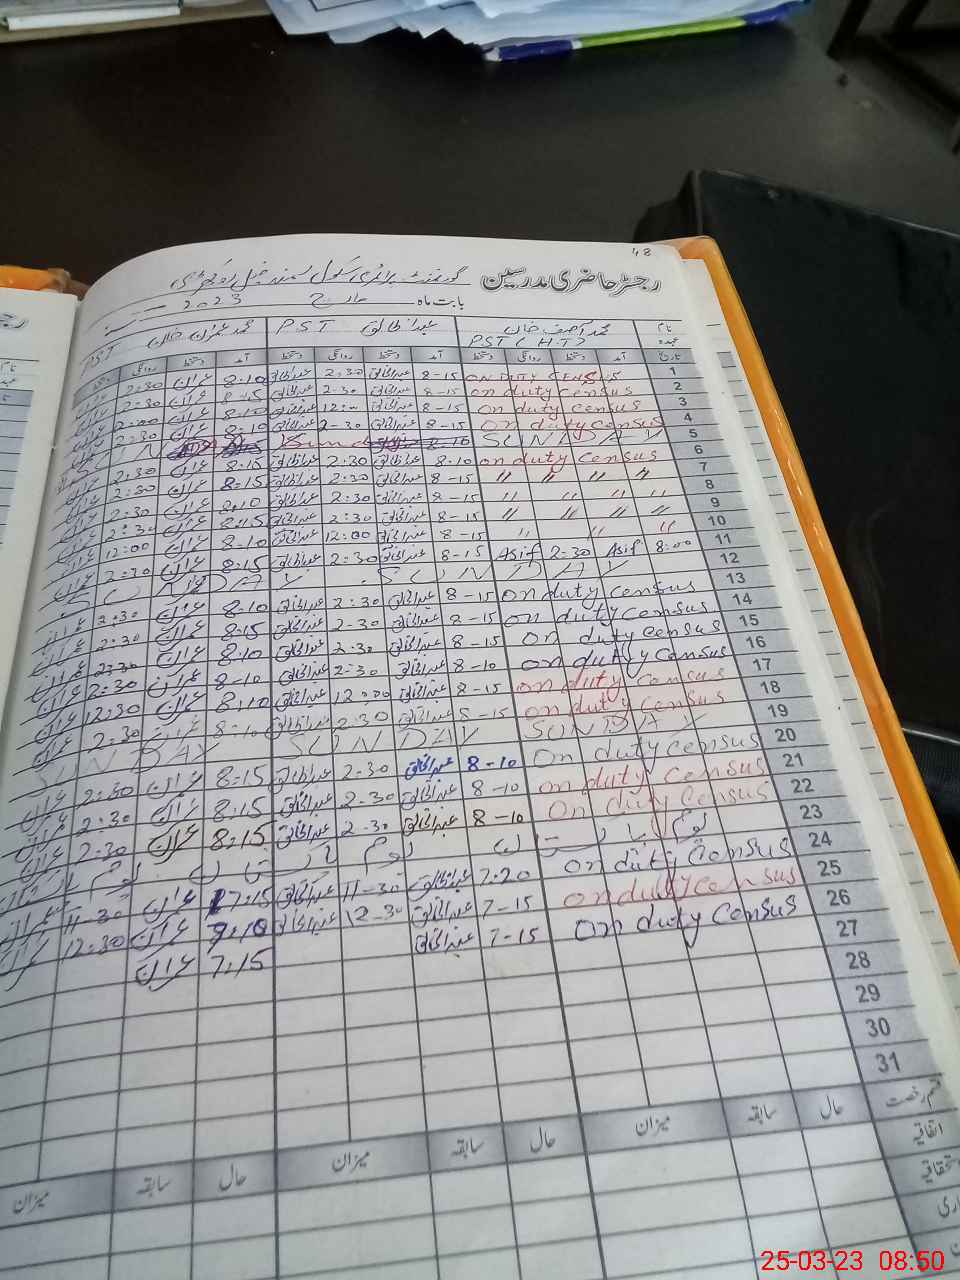 48
رجسٹر حاضری مدرسین گورنمنٹ پرائمری سکول
بابت ماہ مارچ 2023
نام محمد آصف خان عبدالخالق PST محمد عمران خان PST
عہدہ PST (H.T)
تاریخ آمد دستخط روانگی دستخط آمد دستخط روانگی دستخط آمد دستخط روانگی دستخط
1 ON DUTY CENSUS 8-15 عبدالخالق 2:30 عبدالخالق 8:10 عمران 2:30
2 on duty census 8-15 عبدالخالق 2-30 عبدالخالق 8:15 عمران 2:30
3 on duty census 8-15 عبدالخالق 12:00 عبدالخالق 8:10 عمران
4 on duty census 8-15 عبدالخالق 2-30 عبدالخالق 8:10 عمران 2:30
5 SUNDAY
6 on duty census 8:10 عبدالخالق 2:30 عبدالخالق 8:15 عمران 2:30
7 〃 〃 〃 〃 8-15 عبدالخالق 2:30 عبدالخالق 8:15 عمران 2:30
8 〃 〃 〃 〃 8-15 عبدالخالق 2:30 عبدالخالق 8:10 عمران 2:30
9 〃 〃 〃 〃 8-15 عبدالخالق 2:30 عبدالخالق 8:15 عمران 2:30
10 〃 〃 〃 8-15 عبدالخالق 12:00 عبدالخالق 8:10 عمران 12:00
11 8:00 Asif 2-30 Asif 8-15 عبدالخالق 2:30 عبدالخالق 8:15 عمران 2:30
12 SUNDAY SUNDAY
13 on duty census 8-15 عبدالخالق 2:30 عبدالخالق 8:10 عمران 2:30
14 on duty census 8-15 عبدالخالق 2:30 عبدالخالق 8:15 عمران 2:30
15 on duty census 8-15 عبدالخالق 2:30 عبدالخالق 8:10 عمران 2:30
16 on duty census 8-10 عبدالخالق 2:30 عبدالخالق 8-10 عمران 2:30
17 on duty census 8-15 عبدالخالق 12:00 عبدالخالق 8:10 عمران 12:30
18 on duty census 8-15 عبدالخالق 2:30 عبدالخالق 8:10 عمران 2:30
19 SUNDAY SUNDAY SUNDAY
20 on duty census 8-10 عبدالخالق 2-30 عبدالخالق 8:15 عمران 2:30
21 on duty census 8-10 عبدالخالق 2-30 عبدالخالق 8:15 عمران 2:30
22 on duty census 8-10 عبدالخالق 2-30 عبدالخالق 8:15 عمران 2:30
23 یوم پاکستان یوم پاکستان
24 on duty census 7:20 عبدالخالق 11-30 عبدالخالق 7:15 عمران 11-30
25 on duty census 7-15 عبدالخالق 12-30 عبدالخالق 7:10 عمران 12:30
26 on duty census 7-15 عبدالخالق 7:15 عمران
27
28
29
30
31
قسم رخصت حال سابقہ میزان حال سابقہ میزان حال سابقہ میزان
اتفاقیہ
25-03-23 08:50